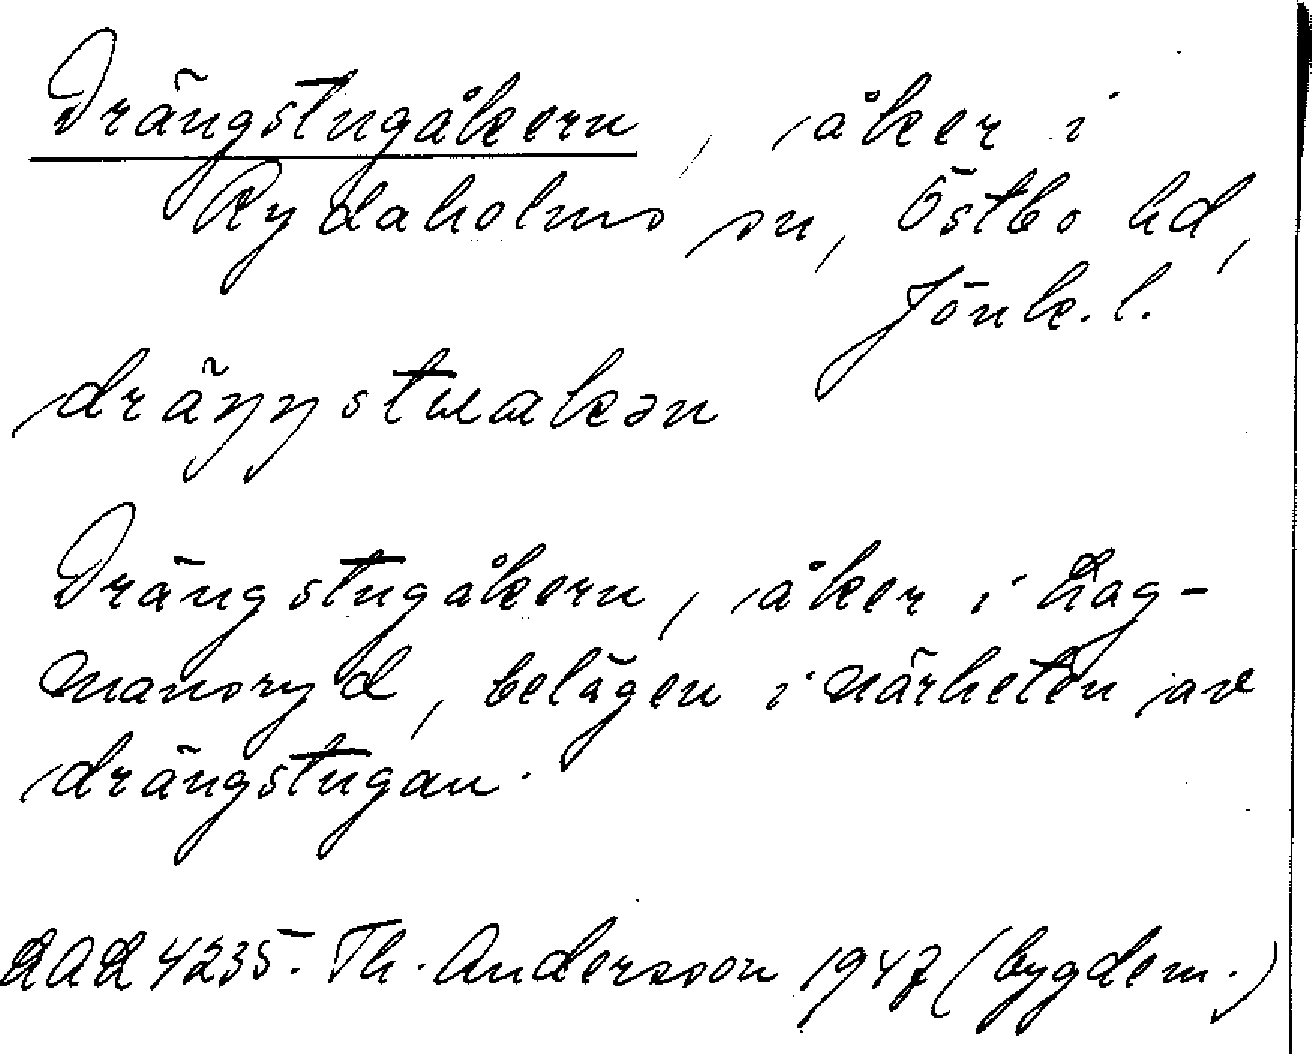 Drängstugåkern, åker i
Rydaholms sn, Östbo hd,
Jönk. l.
dräŋŋstuakən
Drängstugåkern, åker i Lag-
mansryd, belägen i närheten av
drängstugan.
LAL 4235. Th. Andersson 1947 (bygdem.)